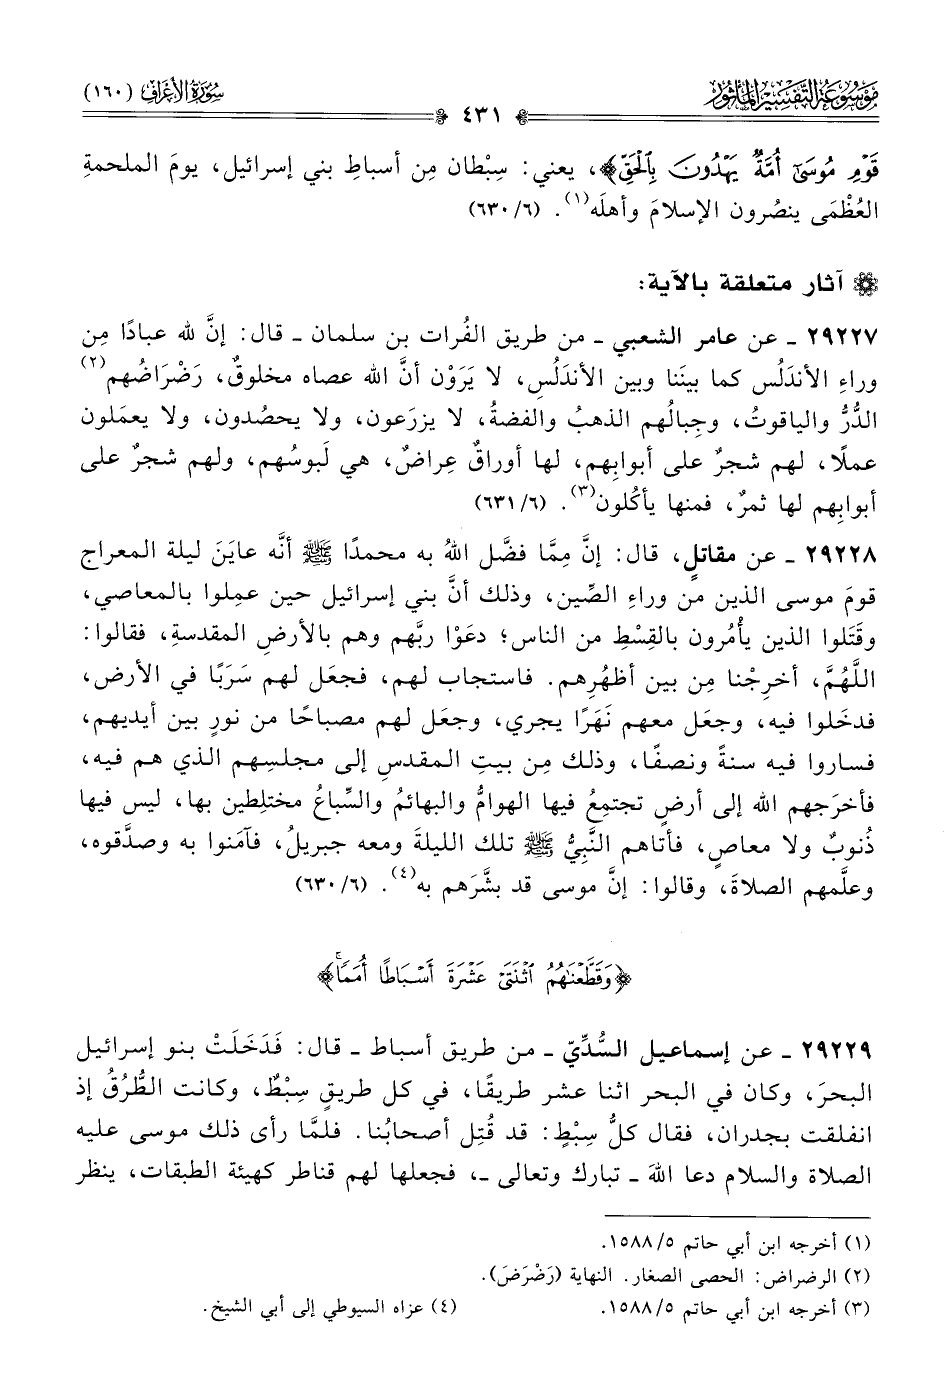 مَوْسُوعَة التَّفْسِير المَأْثُور
سُورَةُ الأَعْرَاف (١٦٠)
٤٣١
قَوْمِ مُوسَىٰٓ أُمَّةٌ يَهْدُونَ بِٱلْحَقِّ﴾، يعني: سِبْطان مِن أسباطِ بني إسرائيل، يومَ الملحمةِ
العُظْمَى ينصُرون الإسلامَ وأهلَه(١). (٦/ ٦٣٠)
آثار متعلقة بالآية:
٢٩٢٢٧ ـ عن عامر الشعبي ـ من طريق الفُرات بن سلمان ـ قال: إنَّ لله عبادًا مِن
وراءِ الأندَلُس كما بينَنا وبين الأندَلُسِ، لا يَرَوْن أنَّ الله عصاه مخلوقٌ، رَضْرَاضُهم(٢)
الدُّرُّ والياقوتُ، وجِبالُهم الذهبُ والفضةُ، لا يزرَعون، ولا يحصُدون، ولا يعمَلون
عملًا، لهم شجرٌ على أبوابِهم، لها أوراقٌ عِراضٌ، هي لَبوسُهم، ولهم شجرٌ على
أبوابِهم لها ثمرٌ، فمنها يأكُلون(٣). (٦/ ٦٣١)
٢٩٢٢٨ ـ عن مقاتلٍ، قال: إنَّ مِمَّا فضَّل اللهُ به محمدًا ﷺ أنَّه عايَن ليلة المعراج
قومَ موسى الذين من وراءِ الصِّين، وذلك أنَّ بني إسرائيل حين عمِلوا بالمعاصي،
وقَتَلوا الذين يأْمُرون بالقِسْطِ من الناس؛ دعَوْا ربَّهم وهم بالأرضِ المقدسةِ، فقالوا:
اللَّهُمَّ، أخرِجْنا مِن بين أظهُرِهم. فاستجاب لهم، فجعَل لهم سَرَبًا في الأرض،
فدخَلوا فيه، وجعَل معهم نَهَرًا يجري، وجعَل لهم مصباحًا من نورٍ بين أيديهم،
فساروا فيه سنةً ونصفًا، وذلك مِن بيتِ المقدسِ إلى مجلسِهم الذي هم فيه،
فأخرَجهم الله إلى أرضٍ تجتمِعُ فيها الهوامُّ والبهائمُ والسِّباعُ مختلِطين بها، ليس فيها
ذُنوبٌ ولا معاصٍ، فأتاهم النَّبيُّ ﷺ تلك الليلةَ ومعه جبريلُ، فآمَنوا به وصدَّقوه،
وعلَّمهم الصلاةَ، وقالوا: إنَّ موسى قد بشَّرَهم به(٤). (٦/ ٦٣٠)
﴿وَقَطَّعْنَٰهُمُ ٱثْنَتَىْ عَشْرَةَ أَسْبَاطًا أُمَمًاۚ﴾
٢٩٢٢٩ ـ عن إسماعيل السُّدِّيّ ـ من طريق أسباط ـ قال: فَدَخَلَتْ بنو إسرائيل
البحرَ، وكان في البحر اثنا عشر طريقًا، في كل طريقٍ سِبْطٌ، وكانت الطُّرُقُ إذ
انفلقت بجدران، فقال كلُّ سِبْطٍ: قد قُتِل أصحابُنا. فلمَّا رأى ذلك موسى عليه
الصلاة والسلام دعا اللهَ ـ تبارك وتعالى ـ، فجعلها لهم قناطر كهيئة الطبقات، ينظر
(١) أخرجه ابن أبي حاتم ٥/ ١٥٨٨.
(٢) الرضراض: الحصى الصغار. النهاية (رَضْرَضَ).
(٣) أخرجه ابن أبي حاتم ٥/ ١٥٨٨. (٤) عزاه السيوطي إلى أبي الشيخ.